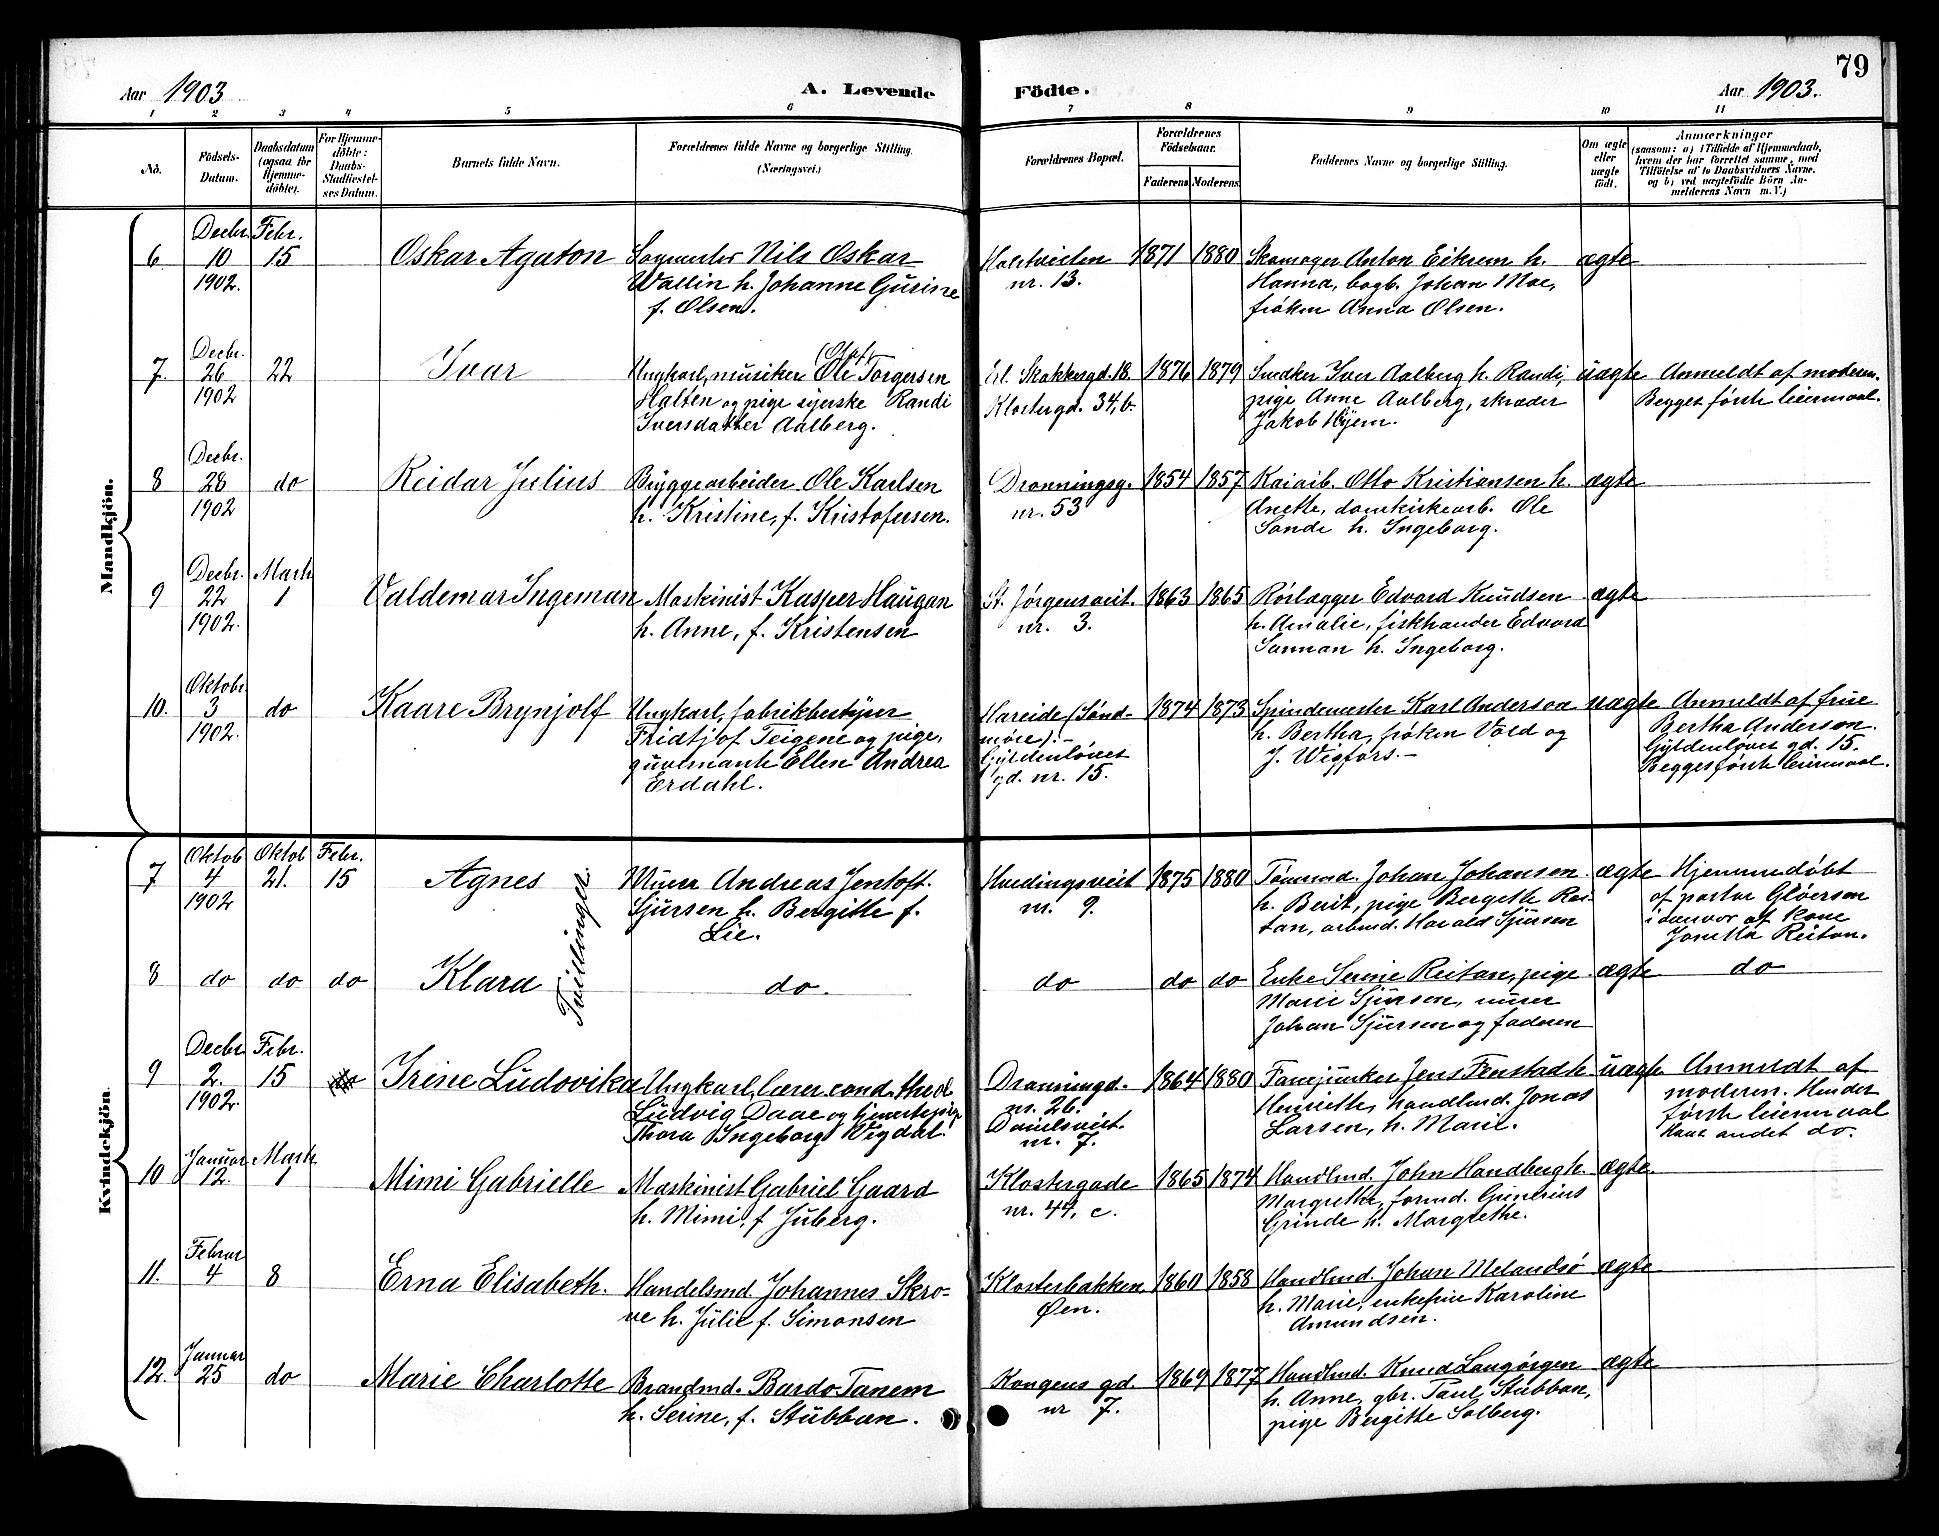 79
Aar 1903 A. Levende Födte. Aar 1903.
1 2 3 4 5 6 7 8 9 10 11
No. Födsels-Datum. Daabsdatum (ogsaa for Hjemme-döbte). For Hjemme-döbte: Daabs-Stadfæstel-ses Datum. Barnets fulde Navn. Forældrenes fulde Navne og borgerlige Stilling. (Næringsvei.) Forældrenes Bopæl. Forældrenes Födselsaar. Faderens Moderens Faddernes Navne og borgerlige Stilling. Om ægte eller uægte födt. Anmærkninger (saasom: a) i Tilfælde af Hjemmedaab, hvem der har forrettet samme, med Tilföielse af to Daabsvidners Navne. og b) ved uægtefödte Börn An-melderens Navn m. V.)
Mandkjön.
6 Decbr. 10 1902. Febr. 15 Oskar Agaton Nils Oskar
Wallin h. Johanne Gurine
f. Olsen.
nr. 13. 1871 1880 Skomager Anton Eikrem h.
Hanna, bogb. Johan Moe,
frøken Anna Olsen. ægte
7. Decbr. 26 1902 22 Ivar Ungkarl, musiker (Olaf) Ole Torgersen
Halten og pige syerske Randi
Iversdatter Aalberg.
Erl. Skakkesgd. 18.
Klostergd. 34, b. 1876 1879 Snedker Iver Aalberg h. Randi,
pige Anne Aalberg, skræder
Jakob Hjem. uægte Anmeldt af moderen.
Begges første leiermaal.
8 Decbr. 28 1902 do Reidar Julius Bryggearbeider Ole Karlsen
h. Kristine, f. Kristofersen.
Dronningsg.
nr. 53 1854 1857 Otto Kristiansen h.
Anette, domkirkearb. Ole
Sande h. Ingeborg. ægte
9 Decbr. 22 1902. Marts 1 Valdemar Ingeman Maskinist Kasper Haugan
h. Anne, f. Kristensen
St. Jørgensveit.
nr. 3. 1863 1865 Rørlægger Edvard Knudsen
h. Amalie, fiskhandler Edvard
Sannan h. Ingeborg. ægte
10. Oktobr. 3 1902. do Kaare Brynjolf Ungkarl, fabrikbestyrer
Fridtjof Teigene og pige,
Ellen Andrea
Erdahl.
Hareide (Sønd-
møre).-
Gyldenløves
gd. nr. 15. 1874 1873 Spindemester Karl Anderson
h. Bertha, frøken Vold og
J. Wigfors.- uægte Anmeldt af frue
Bertha Anderson.
Gyldenløves gd. 15.
Begges første leiermaal.
Kvindekjön.
7 Oktob 4 1902 Oktob 21. Febr. 15 Agnes Murer Andreas Jentoft
Sjursen h. Bergitte f.
Lie.
Hvedingsveit
nr. 9. 1875 1880 Tømmd. Johan Johansen
h. Berit, pige Bergeth Rei-
tan, arbmd. Harald Sjursen ægte Hjemmedøbt
af pastor Gløersen
i nærvær af kone
Reitan.
Tvillinger.
8 do do do Klara do. do do do Enke Serine Reitan, pige
Marie Sjursen, murer
Johan Sjursen og faderen ægte do
9 Decbr. 2. 1902. Febr. 15 Irene Ludovika Ungkarl, lærer cand. theol
Ludvig Daae og tjenestepige
Thora Ingeborg Vigdal.
Dronningd.
nr. 26.
nr. 7. 1864 1880 Fanejunker Jens Fenstad h.
Henriette, handlmd. Jonas
Larsen, h. Marie. uægte Anmeldt af
moderen. Hendes
første leiermaal
Hans andet do.
10 Januar 12. Marts 1 Mimi Gabrielle Maskinist Gabriel Gaard
h. Mimi, f. Juberg.
Klostergade
nr. 44, c. 1865 1874 Handlmd. John Handberg h.
Margrethe, formd. Grinerius
Grinde h. Margrethe. ægte
11. Februar 4 8 Erna Elisabeth. Handelsmd. Johannes Skro-
ve h. Julie f. Simonsen
Klosterbakken,
Øen. 1860 1858 Handlmd. Johan Melandsø
h. Marie, enkefrue Karoline
Amundsen. ægte
12. Januar 25 do Marie Charlotte Brandmd. Bardo Tanem
h. Serine, f. Stubban.
Kongens gd.
nr 7. 1869 1877 Handlmd. Knud Langørgen
h. Anne, gbr. Paul Stubban,
pige Bergitte Solberg. ægte